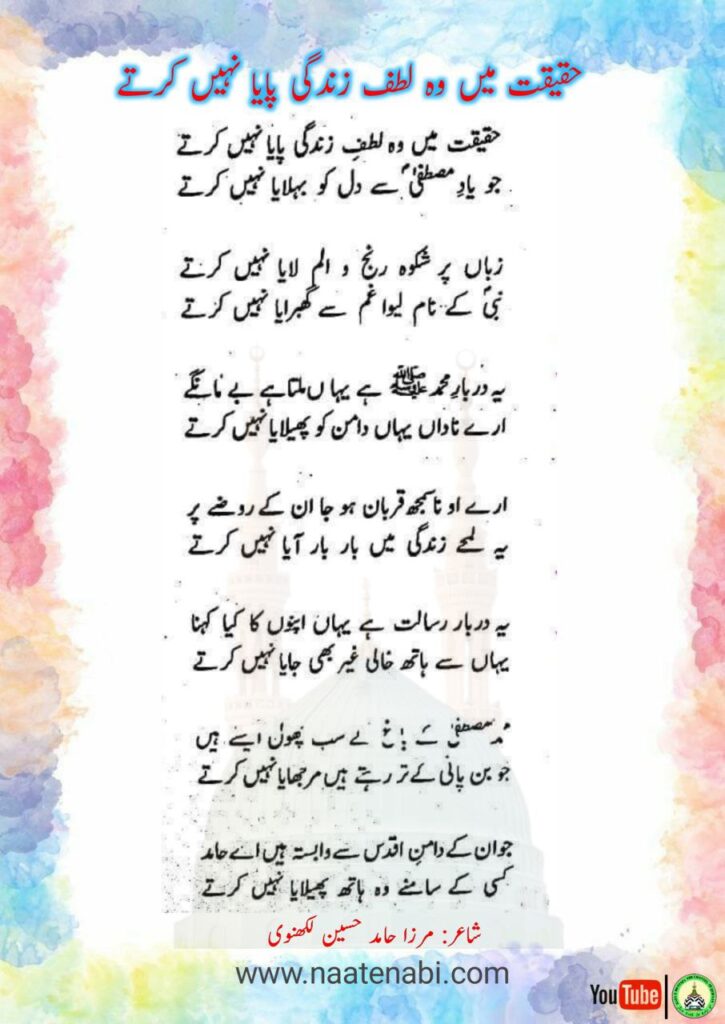 حقیقت میں وہ لطف زندگی پایا نہیں کرتے
حقیقت میں وہ لطفِ زندگی پایا نہیں کرتے
جو یادِ مصطفیٰؐ سے دل کو بہلایا نہیں کرتے
زباں پر شکوہ رنج و الم لایا نہیں کرتے
نبیؐ کے نام لیوا غم سے گھبرایا نہیں کرتے
یہ دربارِ محمد ﷺ ہے یہاں ملتا ہے بے مانگے
ارے ناداں یہاں دامن کو پھیلایا نہیں کرتے
ارے او ناسمجھ قربان ہو جا ان کے روضے پر
یہ لمحے زندگی میں بار بار آیا نہیں کرتے
یہ دربار رسالت ہے یہاں اپنوں کا کیا کہنا
یہاں سے ہاتھ خالی غیر بھی جایا نہیں کرتے
مصطفیٰ کے باغ کے سب پھول ایسے ہیں
جو بن پانی کے تر رہتے ہیں مرجھایا نہیں کرتے
جو ان کے دامنِ اقدس سے وابستہ ہیں اے حامد
کسی کے سامنے وہ ہاتھ پھیلایا نہیں کرتے
شاعر: مرزا حامد حسین لکھنوی
www.naatenabi.com
YouTube